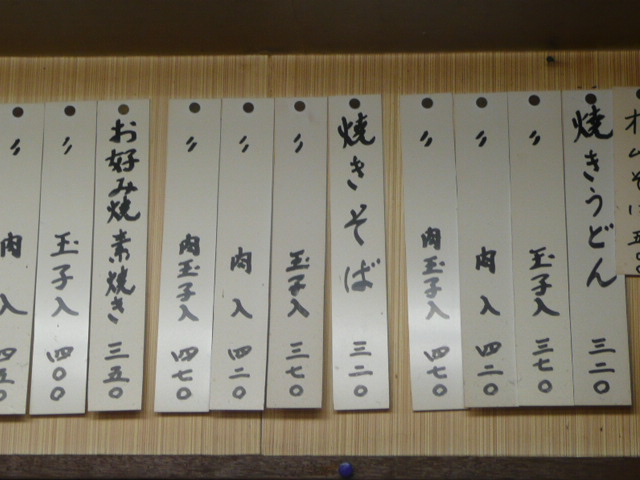 焼きうどん 三二〇
〃 玉子入 三七〇
〃 肉入 四二〇
〃 肉玉子入 四七〇
焼きそば 三二〇
〃 玉子入 三七〇
〃 肉入 四二〇
〃 肉玉子入 四七〇
お好み焼 素焼き 三五〇
〃 玉子入 四〇〇
〃 肉入 四五〇